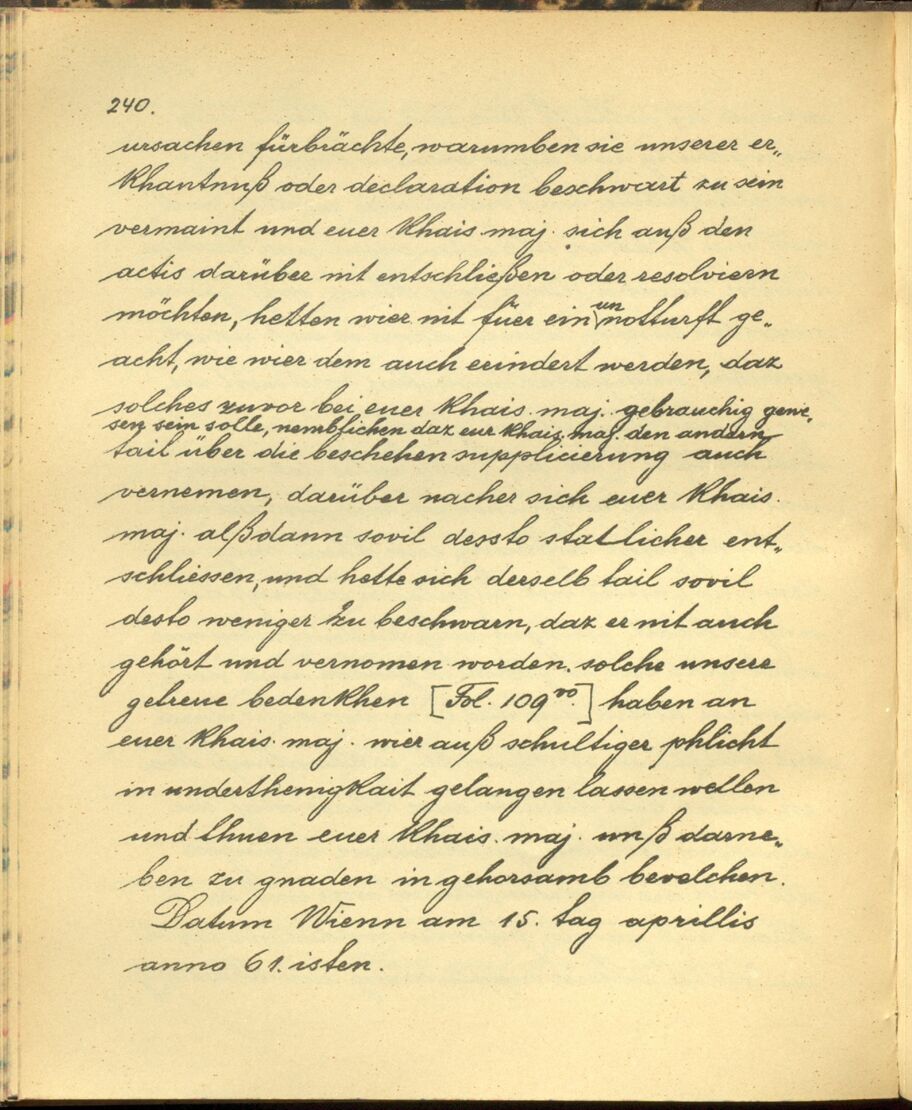 240.
ursachen fürbrächte, warumben sie unserer er„
khantnuß oder declaration beschwart zu sein
vermaint und euer khais. maj. sich auß den
actis darüber nit entschließen oder resolviern
möchten, hetten wier nit füer ein unnotturft ge„
acht, wie wier dem auch erindert werden, daz
solches zuvor bei euer khais. maj. gebrauchig gewe„
sen sein solle, nemblichen daz eur khais. maj. den andern
tail über die beschehen supplicierung auch
vernemen, darüber nacher sich euer khais.
maj. alßdann sovil dessto statlicher ent„
schliessen, und hette sich derselb tail sovil
desto weniger zu beschwarn, daz er nit auch
gehört und vernomen worden. solche unsere
getreue bedenkhen [Fol. 109 vo.] haben an
euer khais. maj. wier auß schultiger phlicht
in underthenigkait gelangen lassen wellen
und thuen euer khais. maj. unß darne„
ben zu gnaden in gehorsamb bevelchen.
Datum Wienn am 15. tag aprillis
anno 61. isten.